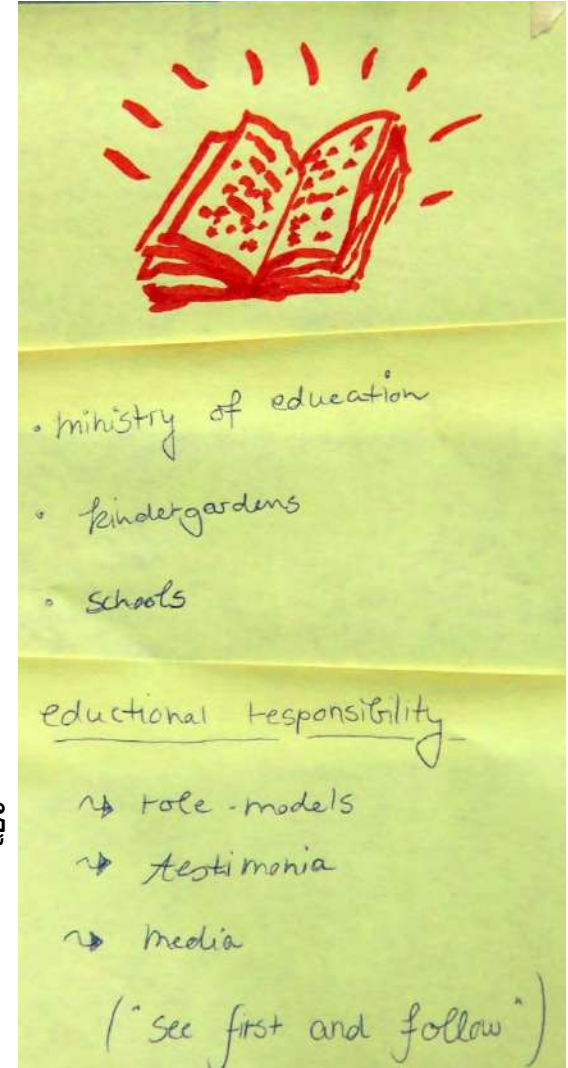 • ministry of education
• kindergardens
• schools
eductional responsibility
→ role-models
→ testimonia
→ media
("see first and follow")